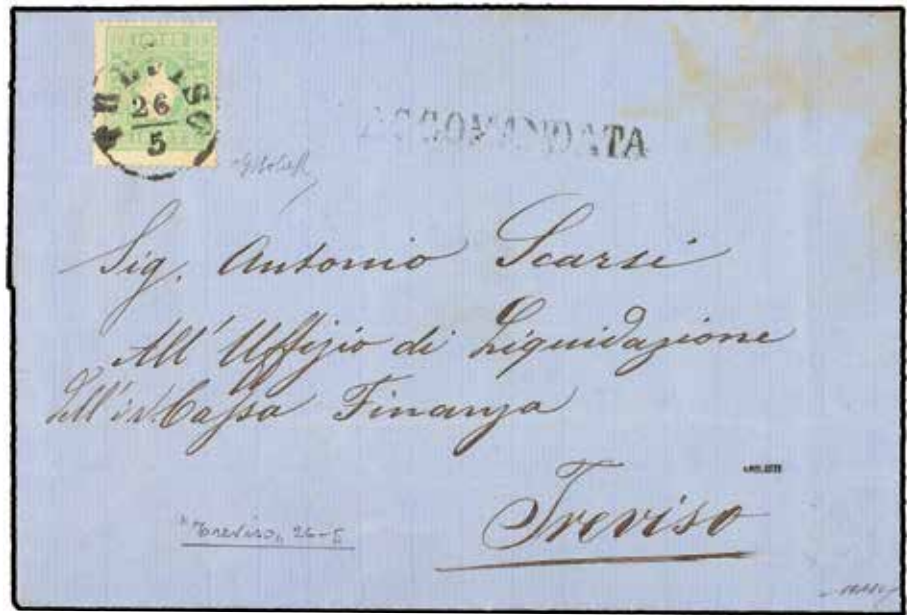 TREVISO
26
5
ACCOMANDATA
Sig. Antonio Scarsi
All' Uffizio di Liquidazione
dell' Cassa Finanza
Treviso
"Treviso, 26-5